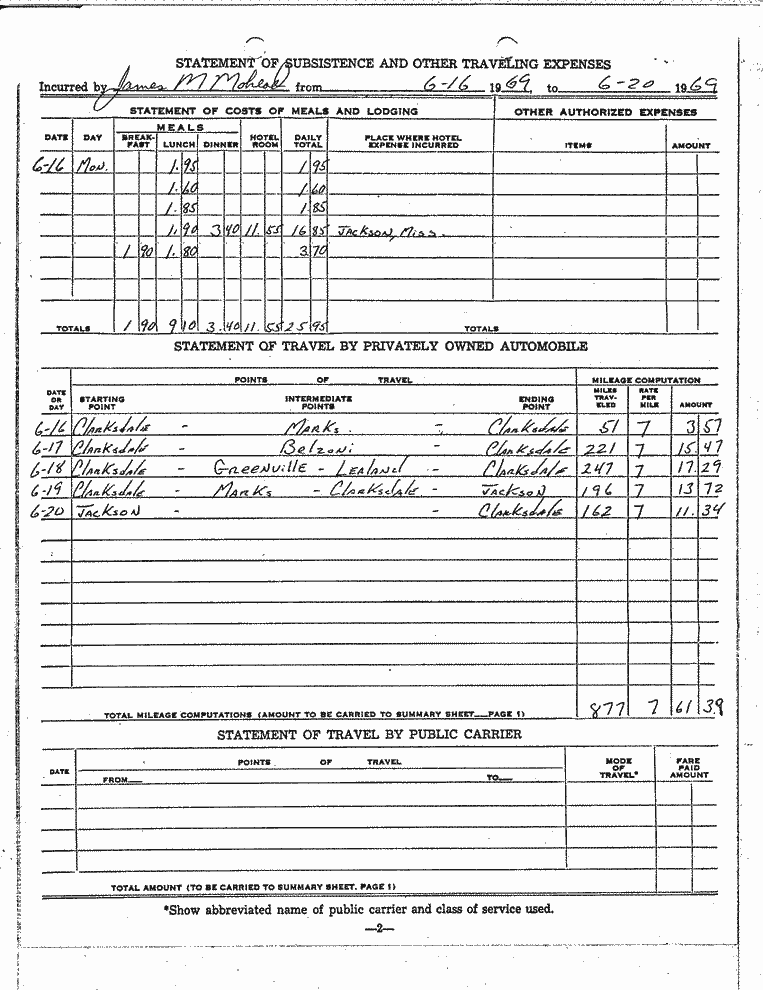 STATEMENT OF SUBSISTENCE AND OTHER TRAVELING EXPENSES
Incurred by James M Mohead from 6-16 1969 to 6-20 1969
STATEMENT OF COSTS OF MEALS AND LODGING OTHER AUTHORIZED EXPENSES
DATE DAY MEALS BREAK-FAST LUNCH DINNER HOTEL ROOM DAILY TOTAL PLACE WHERE HOTEL EXPENSE INCURRED ITEMS AMOUNT
6-16 Mon. 1.95 1 95
1.60 1.60
1.85 1.85
1.90 3 40 11.55 16 85 Jackson, Miss.
1 90 1.80 3 70
TOTALS 1 90 9 10 3.40 11.55 25 95 TOTALS
STATEMENT OF TRAVEL BY PRIVATELY OWNED AUTOMOBILE
POINTS OF TRAVEL MILEAGE COMPUTATION
DATE OR DAY STARTING POINT INTERMEDIATE POINTS ENDING POINT MILES TRAV-ELED RATE PER MILE AMOUNT
6-16 Clarksdale - Marks - Clarksdale 51 7 3 57
6-17 Clarksdale - Belzoni - Clarksdale 221 7 15.47
6-18 Clarksdale - Greenville - Lealand - Clarksdale 247 7 17.29
6-19 Clarksdale - Marks - Clarksdale - Jackson 196 7 13 72
6-20 Jackson - - Clarksdale 162 7 11.34
TOTAL MILEAGE COMPUTATIONS (AMOUNT TO BE CARRIED TO SUMMARY SHEET—PAGE 1) 877 7 61 39
STATEMENT OF TRAVEL BY PUBLIC CARRIER
DATE POINTS OF TRAVEL MODE OF TRAVEL* FARE PAID AMOUNT
FROM— TO—
TOTAL AMOUNT (TO BE CARRIED TO SUMMARY SHEET, PAGE 1)
*Show abbreviated name of public carrier and class of service used.
—2—